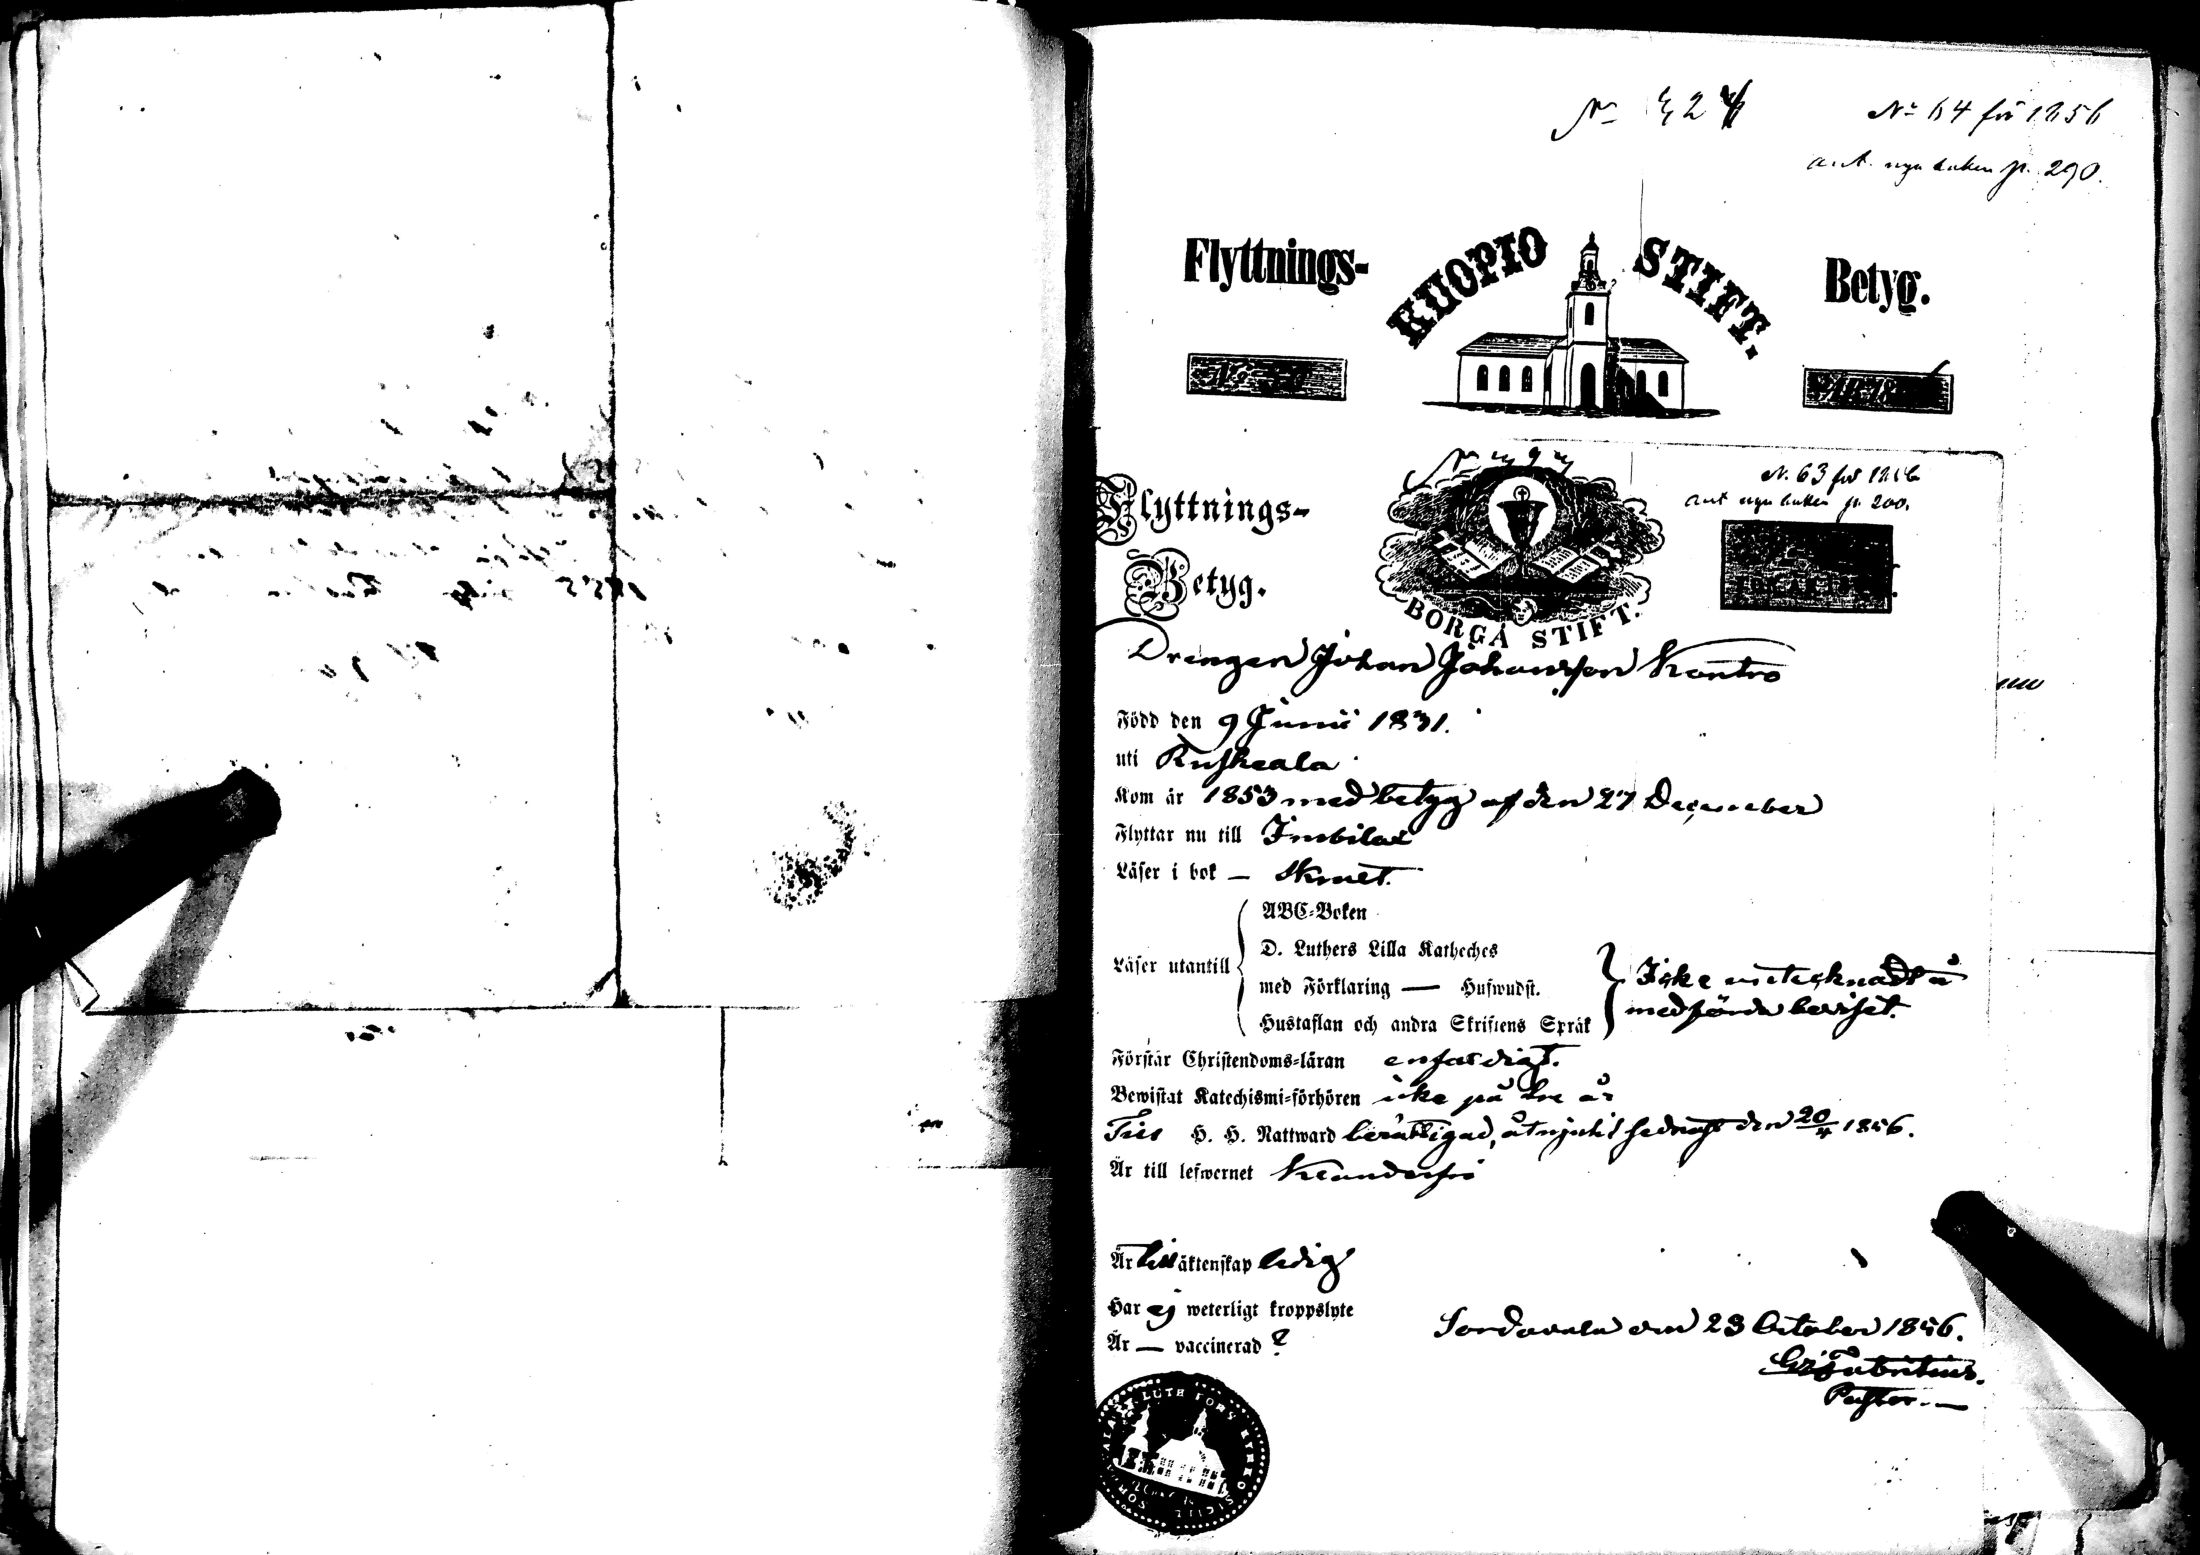 No 64 för 1856
ant. nya boken p. 290.
Flyttnings- KUOPIO STIFT. Betyg.
N. 63 för 1856
ant nya boken p. 200.
Flyttnings-
Betyg.
BORGÅ STIFT.
Drengen Johan Johansson Kontro
Född den 9 Junii 1831.
uti Ruskeala
Kom år 1853 med betyg af den 27 December
Flyttar nu till Imbilax
Läser i bok — Svnet.
ABC-Boken
D. Luthers Lilla Katheches
Läser utantill
med Förklaring — Hufwudst.
Hustaflan och andra Skriftens Språk
Icke antecknadt å
medförda beviset.
Förstår Christendoms-läran enfaldigt.
Bewistat Katechismi-förhören icke på tre år
Till H. H. Nattward berättigad, åtnjutit sednast den 20/4 1856.
Är till lefwernet klanderfri
Är till äktenskap ledig
Har ej weterligt kroppslyte
Är — vaccinerad ?
Sordavala den 23 October 1856.
Fabritius.
Pastor.